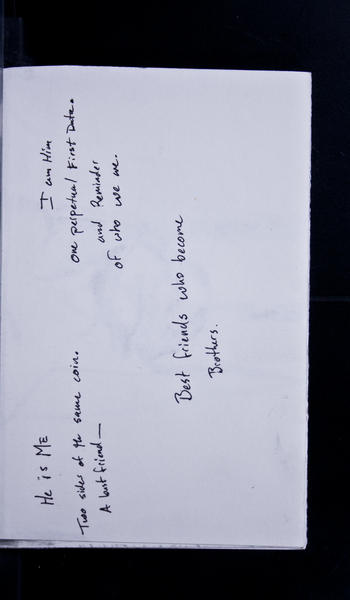 He is ME
Two sides of the same coin.
A best friend —
I am Him
one perpetual First Date.
and Reminder
of who we are.
Best friends who become
Brothers.